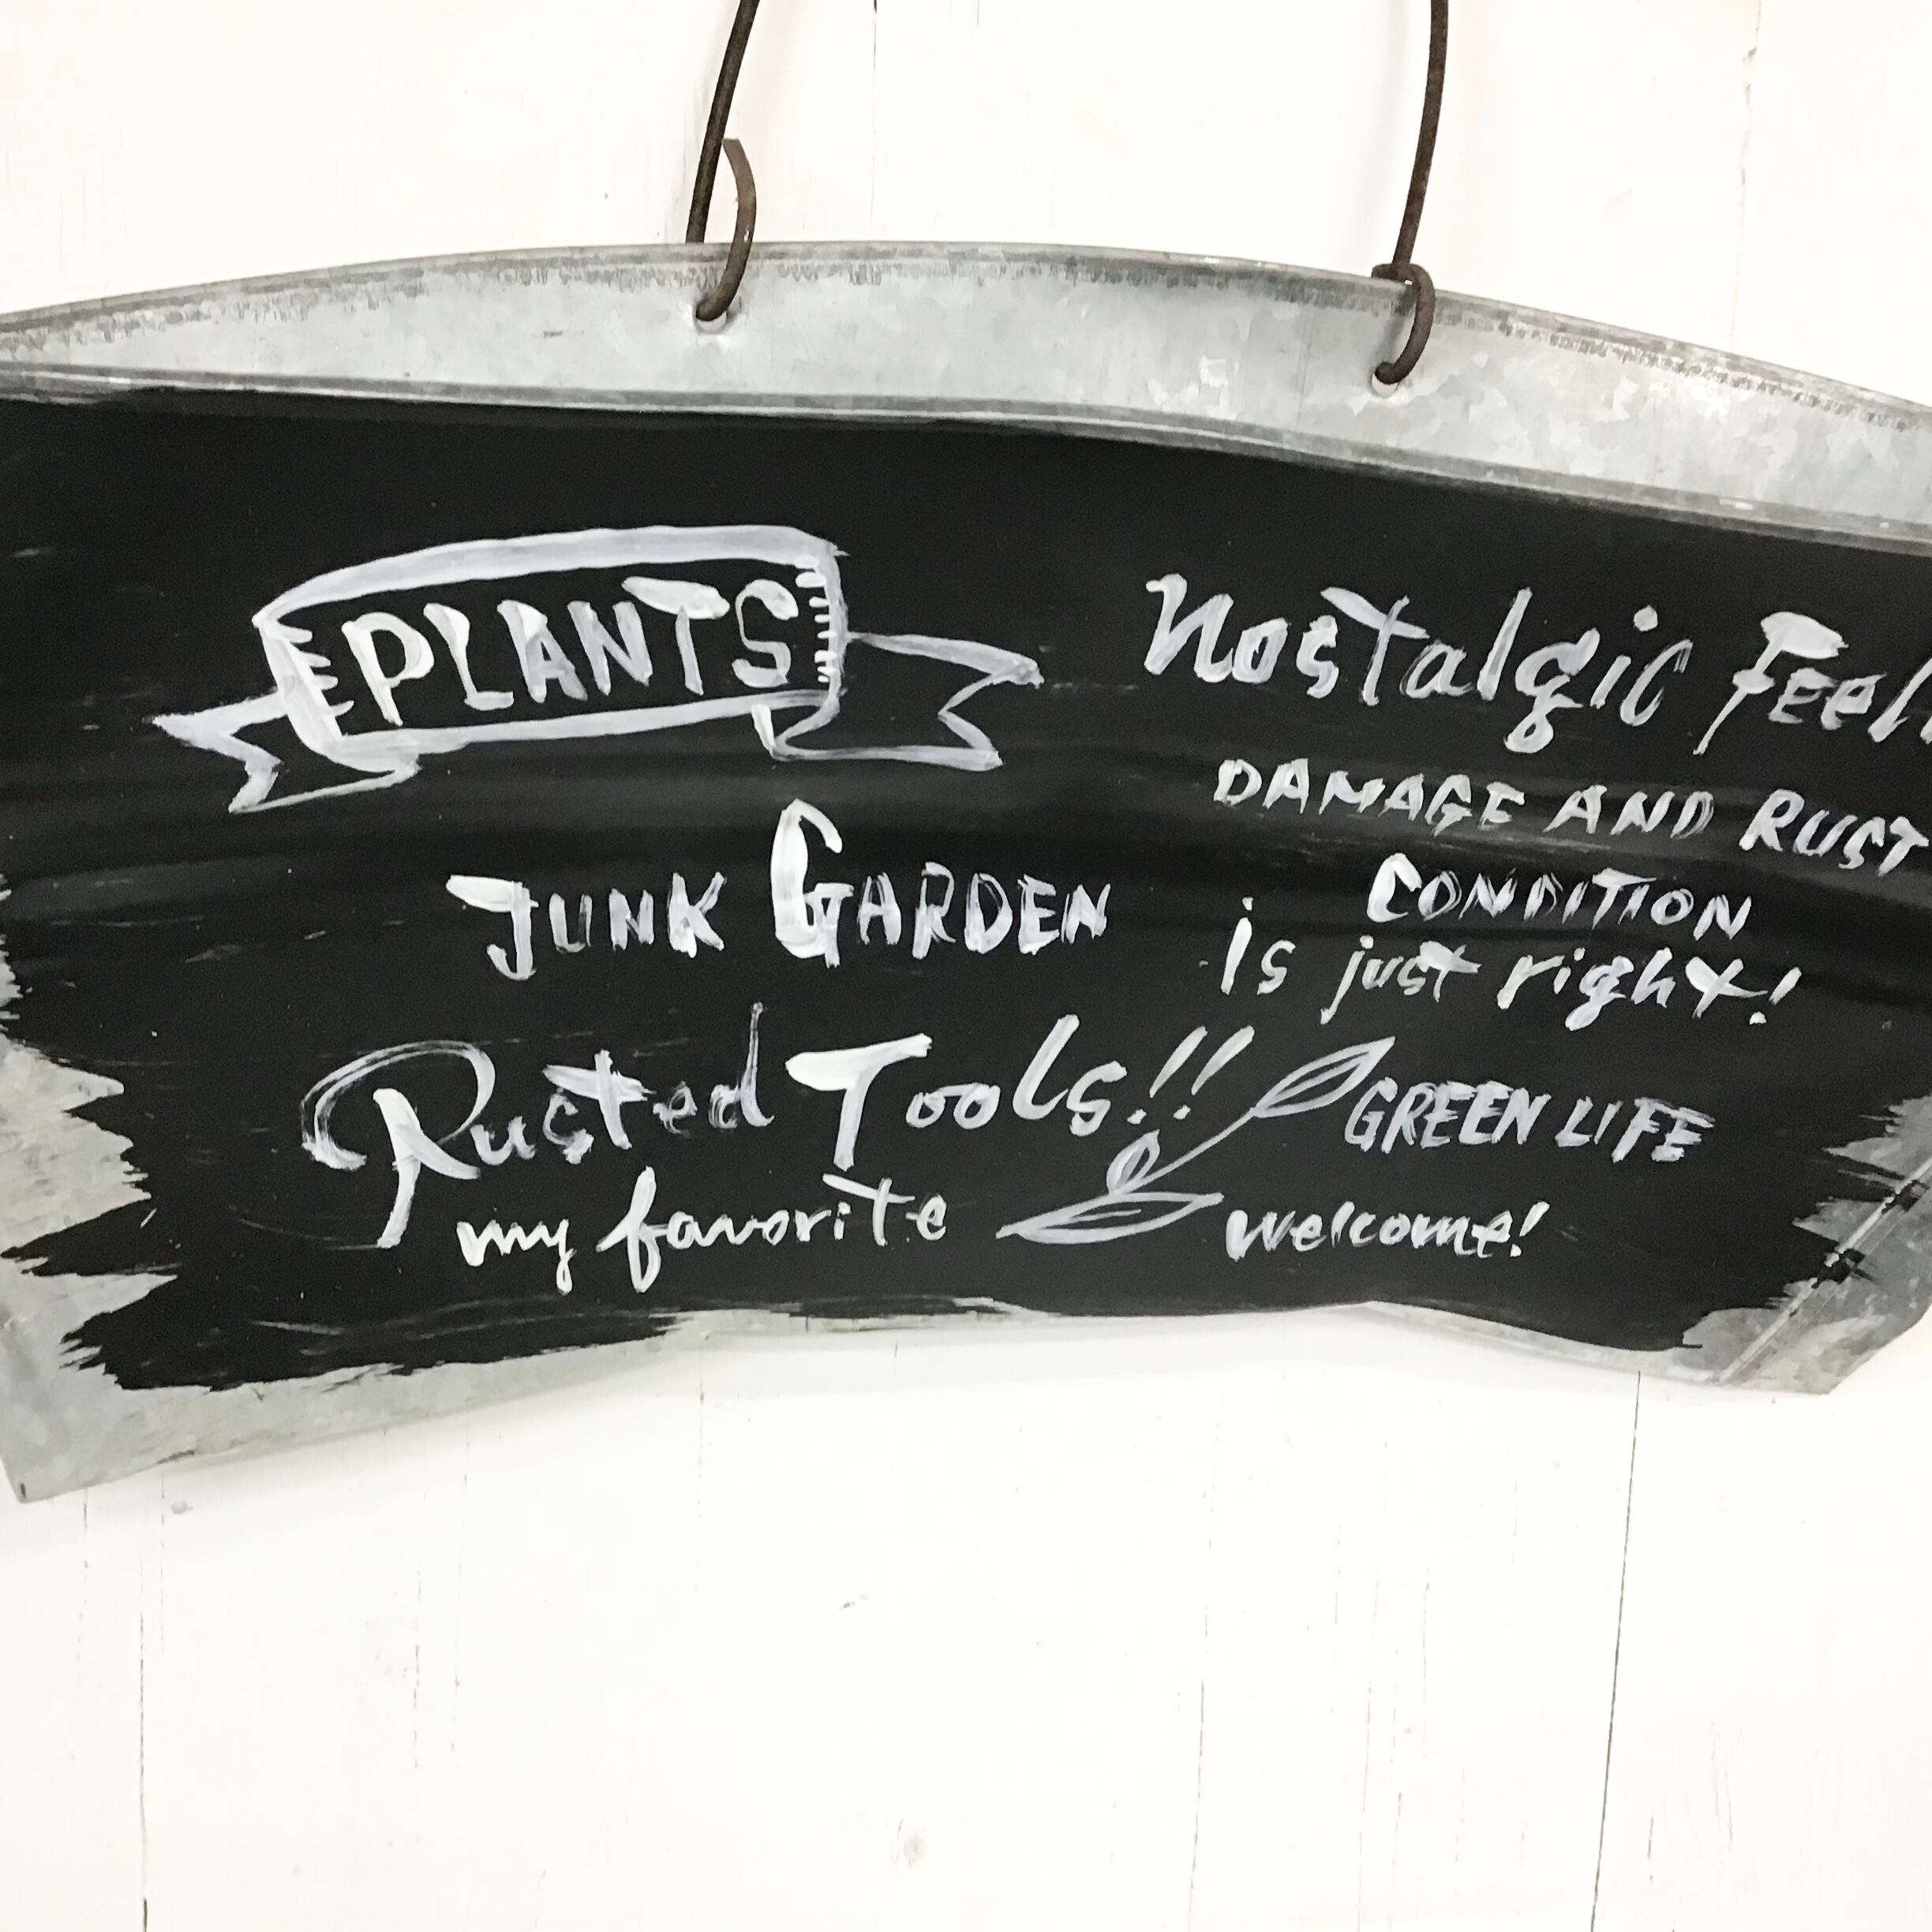 PLANTS
JUNK GARDEN
Rusted Tools!!
my favorite
Nostalgic
DAMAGE AND RUST
CONDITION
is just right!
GREEN LIFE
welcome!